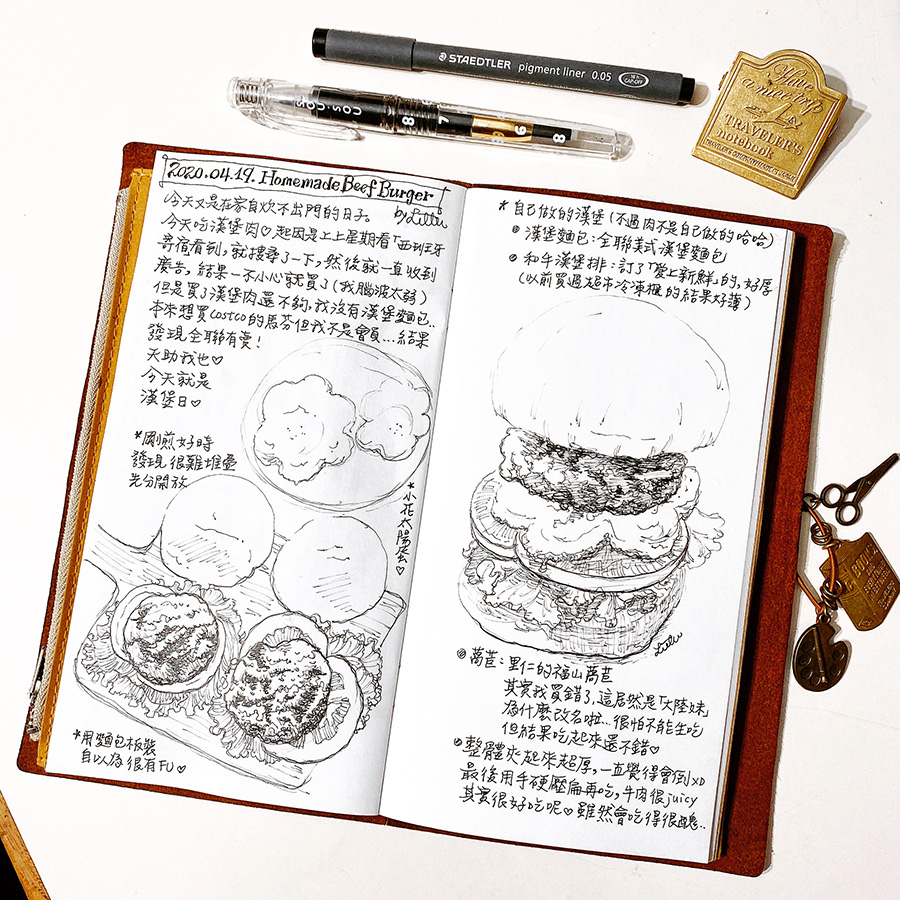 STAEDTLER pigment liner 0.05
CAP-OFF
SOU·SOU
8 7
6 8
Have
a nice trip
TRAVELER'S
notebook
2020.04.19. Homemade Beef Burger
by Littu
今天又是在家自炊不出門的日子。
今天吃漢堡肉♡起因是上上星期看「西班牙
寄宿看到,就搜尋了一下,然後就一直收到
廣告,結果一不小心就買了(我腦波太弱)
但是買了漢堡肉還不夠,我沒有漢堡麵包..
本來想買costco的馬芬但我不是會員...結果
發現全聯有賣!
天助我也♡
今天就是
漢堡日♡
*剛煎好時
發現很難堆疊
先分開放
*小花太陽蛋♡
*用麵包板裝
自以為很有FU♡
*自己做的漢堡(不過肉不是自己做的哈哈)
漢堡麵包:全聯美式漢堡麵包
和牛漢堡排:訂了「愛上新鮮」的,好厚
(以前買過超市冷凍櫃的結果好薄)
Littu
萵苣:里仁的福山萵苣
其實我買錯了,這居然是「大陸妹」
為什麼改名啦...很怕不能生吃
但結果吃起來還不錯♡
整體夾起來超厚,一直覺得會倒XD
最後用手硬壓扁再吃,牛肉很juicy
其實很好吃呢♡雖然會吃得很醜..